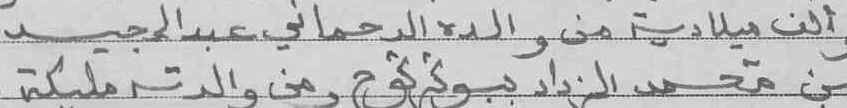 وألف ميلادية من والده الرحماني عبدالمجيد
بن محمد المزداد ومن والدته مليكة